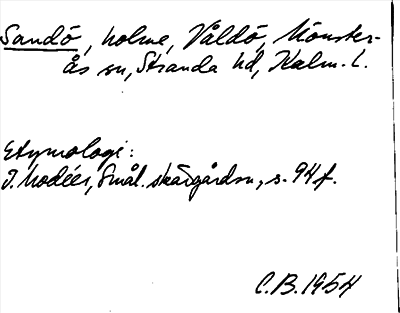 Sandö, holme, Våldö, Mönster-
ås sn, Stranda hd, Kalm. l.
Etymologi:
I. Modéer, Smål. skärgårdsn., s. 94 f.
C.B. 1954